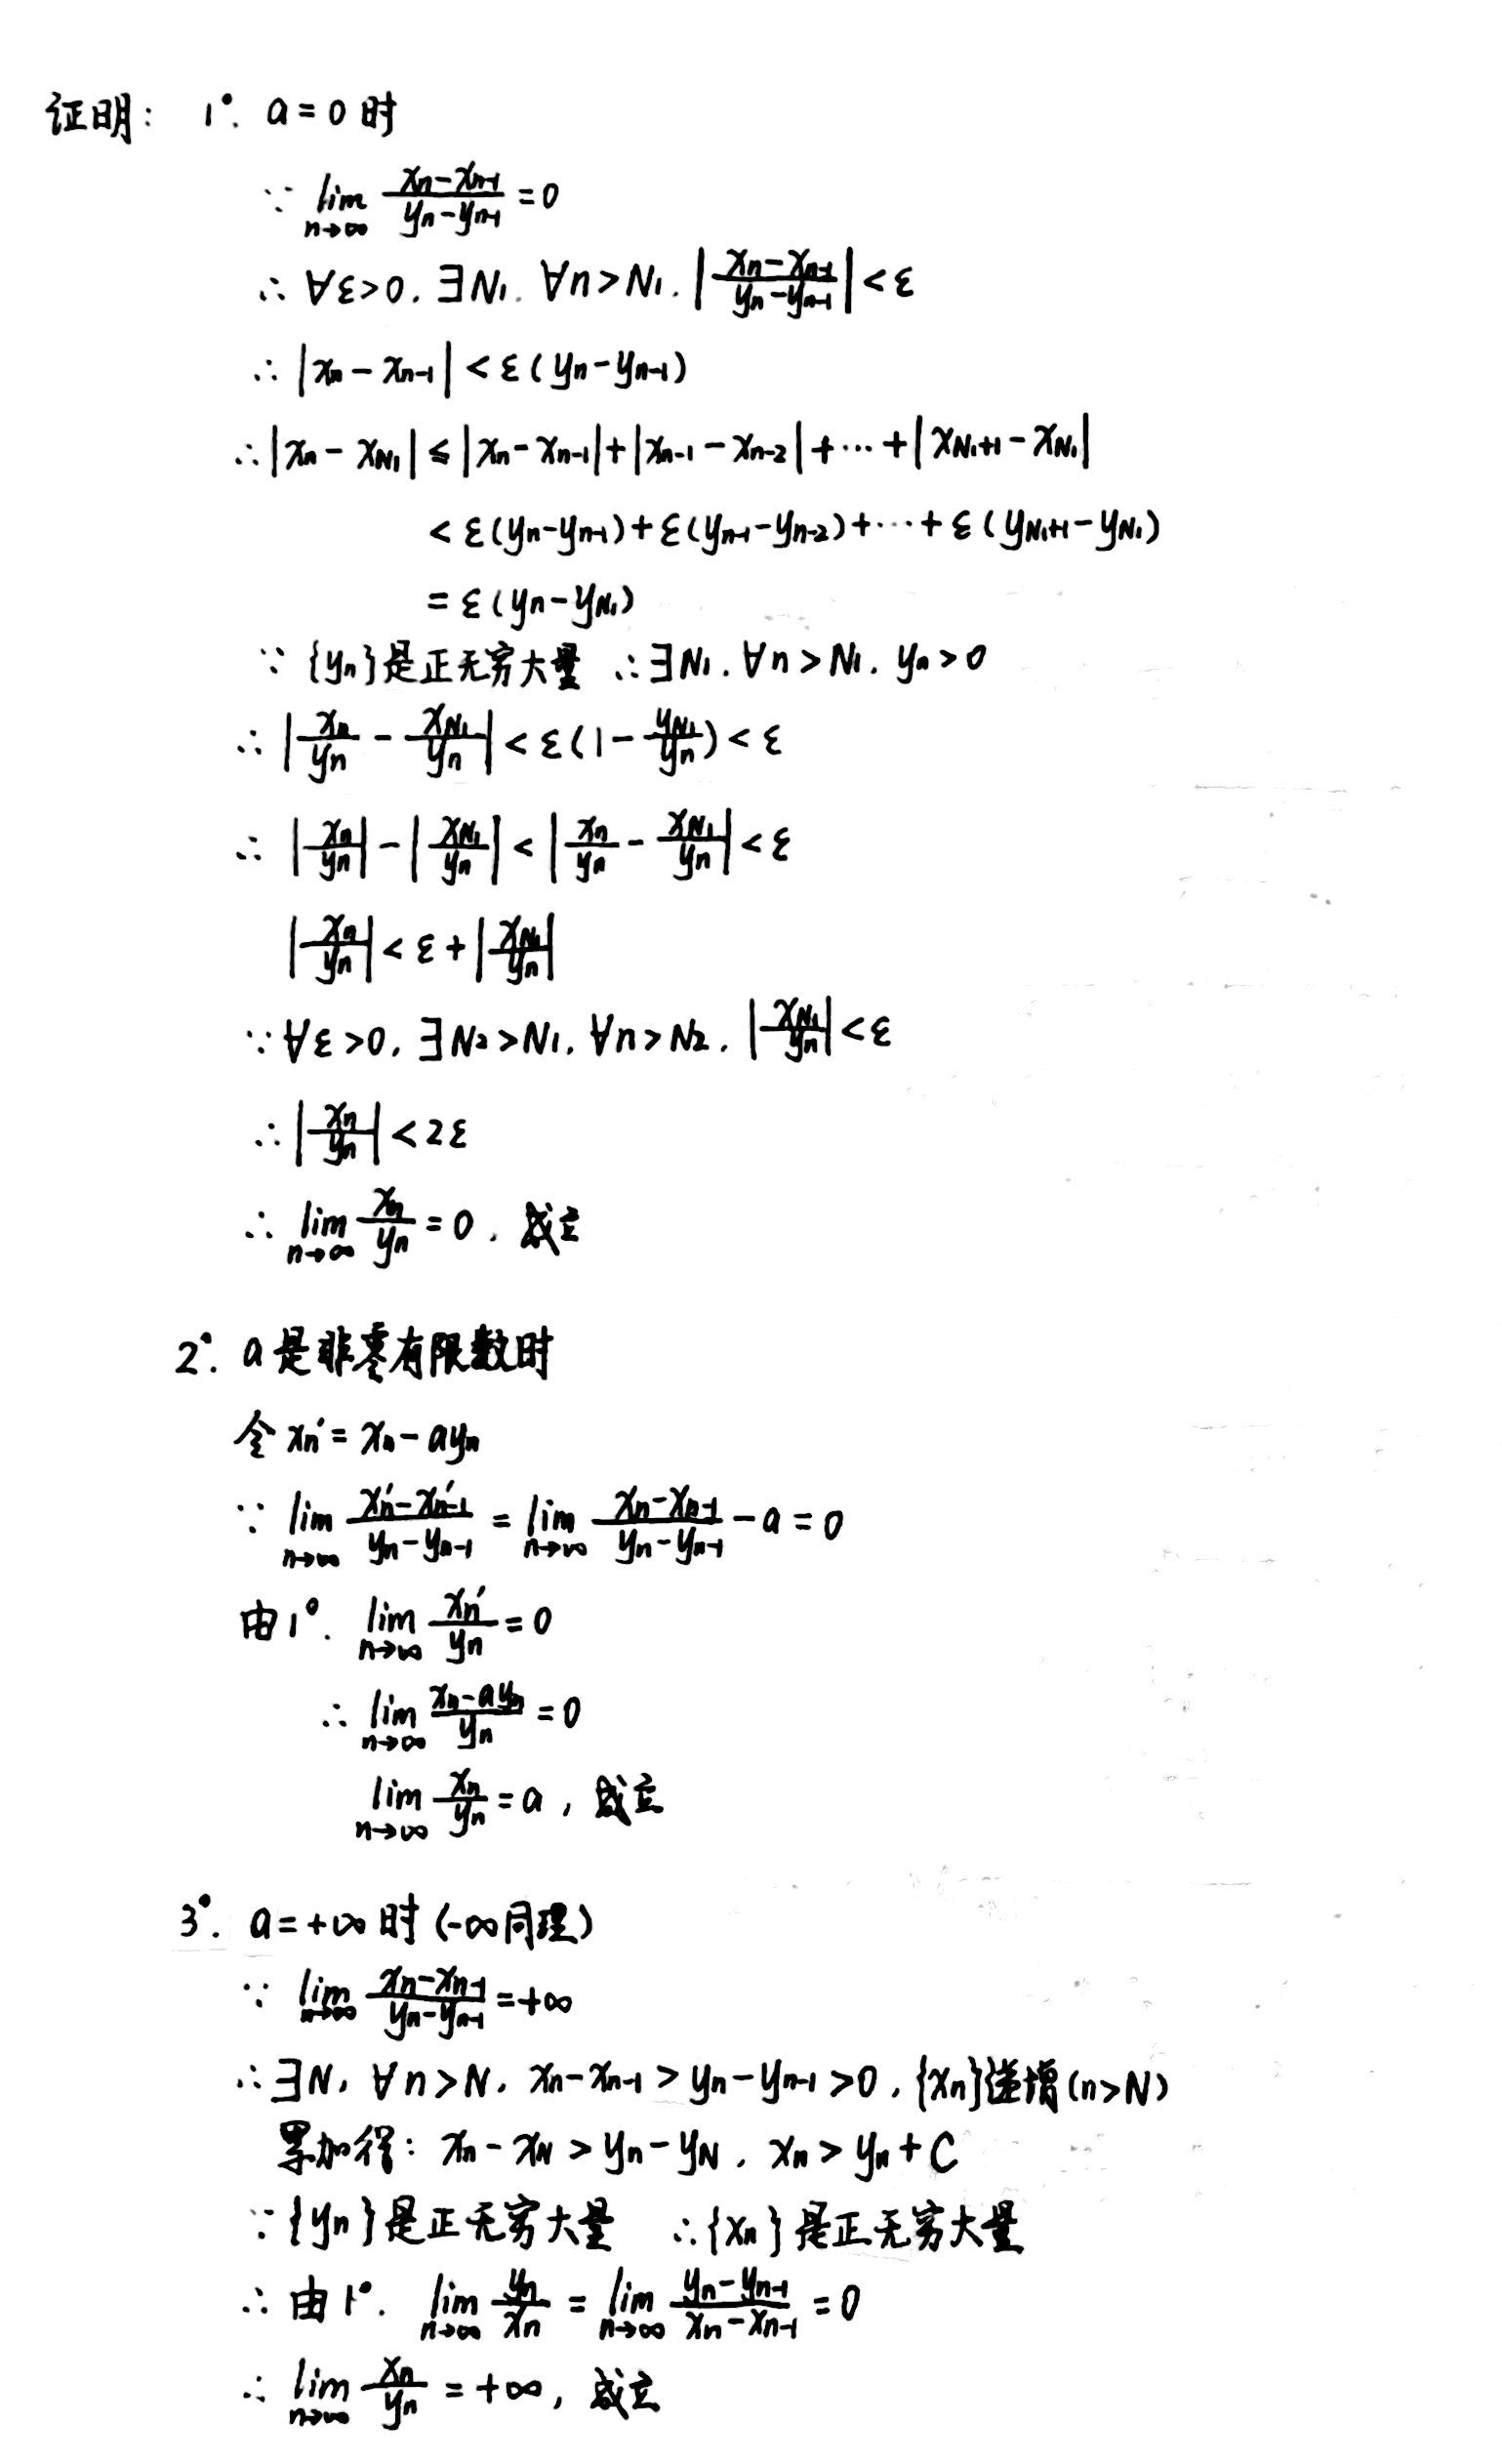 证明： 1°. a=0时
∵ lim_{n→∞} (xₙ-xₙ₋₁)/(yₙ-yₙ₋₁) = 0
∴ ∀ε>0, ∃N₁. ∀n>N₁. |(xₙ-xₙ₋₁)/(yₙ-yₙ₋₁)| < ε
∴ |xₙ-xₙ₋₁| < ε(yₙ-yₙ₋₁)
∴ |xₙ-x_{N₁}| ≤ |xₙ-xₙ₋₁|+|xₙ₋₁-xₙ₋₂|+⋯+|x_{N₁+1}-x_{N₁}|
< ε(yₙ-yₙ₋₁)+ε(yₙ₋₁-yₙ₋₂)+⋯+ε(y_{N₁+1}-y_{N₁})
= ε(yₙ-y_{N₁})
∵ {yₙ}是正无穷大量 ∴∃N₁. ∀n>N₁. yₙ>0
∴ |xₙ/yₙ - x_{N₁}/yₙ| < ε(1-y_{N₁}/yₙ) < ε
∴ |xₙ/yₙ|-|x_{N₁}/yₙ| < |xₙ/yₙ - x_{N₁}/yₙ| < ε
|xₙ/yₙ| < ε+|x_{N₁}/yₙ|
∵∀ε>0, ∃N₂>N₁, ∀n>N₂. |x_{N₁}/yₙ| < ε
∴ |xₙ/yₙ| < 2ε
∴ lim_{n→∞} xₙ/yₙ = 0. 成立
2°. a是非零有限数时
令 xₙ′= xₙ-ayₙ
∵ lim_{n→∞} (xₙ′-xₙ₋₁′)/(yₙ-yₙ₋₁) = lim_{n→∞} (xₙ-xₙ₋₁)/(yₙ-yₙ₋₁) - a = 0
由1°. lim_{n→∞} xₙ′/yₙ = 0
∴ lim_{n→∞} (xₙ-ayₙ)/yₙ = 0
lim_{n→∞} xₙ/yₙ = a, 成立
3°. a=+∞时 (-∞同理)
∵ lim_{n→∞} (xₙ-xₙ₋₁)/(yₙ-yₙ₋₁) = +∞
∴ ∃N, ∀n>N, xₙ-xₙ₋₁ > yₙ-yₙ₋₁ >0, {xₙ}递增(n>N)
累加得： xₙ-x_N > yₙ-y_N, xₙ > yₙ+C
∵ {yₙ}是正无穷大量 ∴{xₙ}是正无穷大量
∴ 由1°. lim_{n→∞} yₙ/xₙ = lim_{n→∞} (yₙ-yₙ₋₁)/(xₙ-xₙ₋₁) = 0
∴ lim_{n→∞} xₙ/yₙ = +∞, 成立